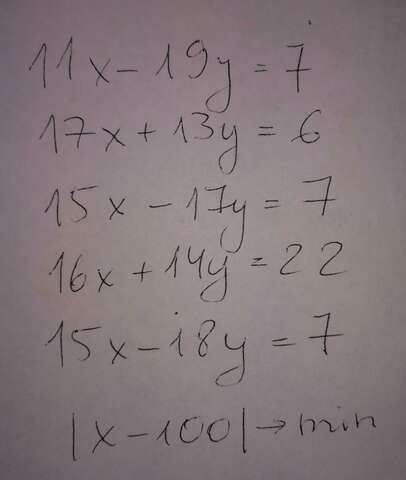 11x - 19y = 7
17x + 13y = 6
15x - 17y = 7
16x + 14y = 22
15x - 18y = 7
|x - 100| → min